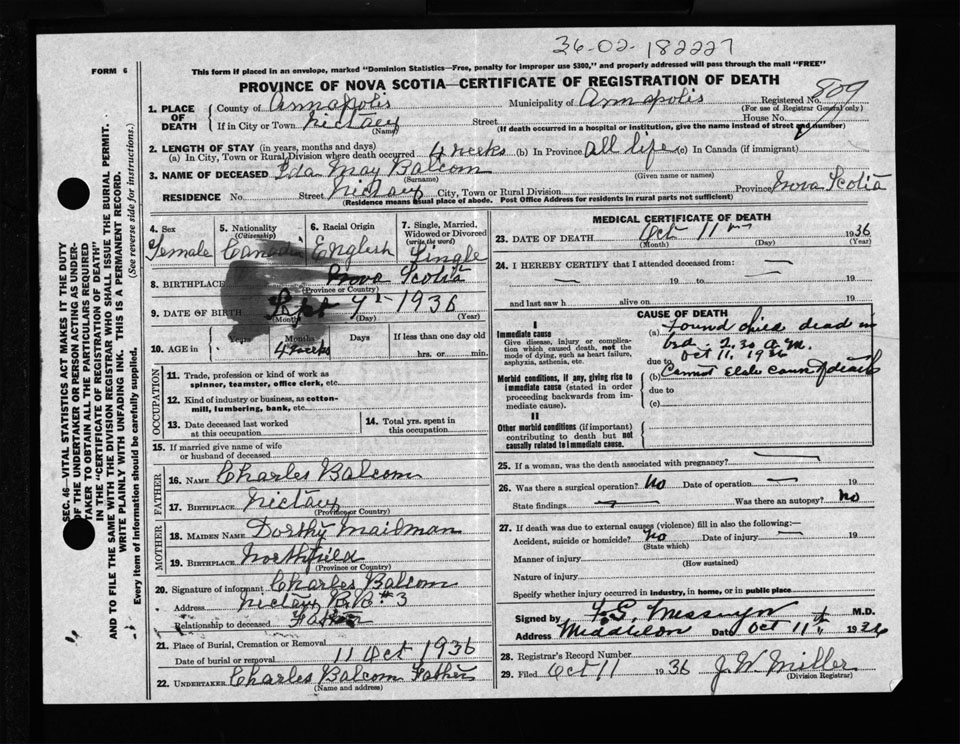 36-02-182227
FORM 6
This form if placed in an envelope, marked "Dominion Statistics—Free, penalty for improper use $300," and properly addressed will pass through the mail "FREE"
PROVINCE OF NOVA SCOTIA—CERTIFICATE OF REGISTRATION OF DEATH
809
1. PLACE OF DEATH County of Annapolis Municipality of Annapolis Registered No.
(For use of Registrar General only)
If in City or Town Nictaux Street House No.
(Name) (If death occurred in a hospital or institution, give the name instead of street and number)
2. LENGTH OF STAY (in years, months and days)
(a) In City, Town or Rural Division where death occurred 4 weeks (b) In Province All life (c) In Canada (if immigrant)
3. NAME OF DECEASED Ida May Balcom
(Surname) (Given name or names)
RESIDENCE No. Street Nictaux City, Town or Rural Division Province Nova Scotia
(Residence means usual place of abode. Post Office Address for residents in rural parts not sufficient)
4. Sex 5. Nationality (Citizenship) 6. Racial Origin 7. Single, Married, Widowed or Divorced (write the word)
Female Canadian English Single
8. BIRTHPLACE Nova Scotia
(Province or Country)
9. DATE OF BIRTH Sept 9 1936
(Month) (Day) (Year)
10. AGE in Years Months Days If less than one day
4 weeks hrs. or min.
OCCUPATION
11. Trade, profession or kind of work as spinner, teamster, office clerk, etc.
12. Kind of industry or business, as cotton-mill, lumbering, bank, etc.
13. Date deceased last worked at this occupation
14. Total yrs. spent in this occupation
15. If married give name of wife or husband of deceased
FATHER
16. NAME Charles Balcom
17. BIRTHPLACE Nictaux
(Province or Country)
MOTHER
18. MAIDEN NAME Dorthy Mailman
19. BIRTHPLACE Northfield
(Province or Country)
20. Signature of informant Charles Balcom
Address Nictaux R.R. #3
Relationship to deceased Father
21. Place of Burial, Cremation or Removal
Date of burial or removal 11 Oct 1936
22. UNDERTAKER Charles Balcom Father
(Name and address)
MEDICAL CERTIFICATE OF DEATH
23. DATE OF DEATH Oct 11 1936
(Month) (Day) (Year)
24. I HEREBY CERTIFY that I attended deceased from:
19 to 19
and last saw h alive on 19
CAUSE OF DEATH
I
Immediate cause
Give disease, injury or complication which caused death, not the mode of dying, such as heart failure, asphyxia, asthenia, etc.
(a) Found child dead in
bed - 2.30 A.M.
Oct 11, 1936
due to
Morbid conditions, if any, giving rise to immediate cause (stated in order proceeding backwards from immediate cause).
(b) Cannot cause of death
due to
(c)
II
Other morbid conditions (if important) contributing to death but not causally related to immediate cause.
25. If a woman, was the death associated with pregnancy?
26. Was there a surgical operation? No Date of operation 19
State findings Was there an autopsy? No
27. If death was due to external causes (violence) fill in also the following:—
Accident, suicide or homicide? No Date of injury 19
(State which)
Manner of injury
(How sustained)
Nature of injury
Specify whether injury occurred in industry, in home, or in public place
Signed by M.D.
Address Middleton Date Oct 11th 1936
28. Registrar's Record Number
29. Filed Oct 11 1936 J. W. Miller
(Division Registrar)
SEC. 46—VITAL STATISTICS ACT MAKES IT THE DUTY
OF THE UNDERTAKER OR PERSON ACTING AS UNDER-
TAKER TO OBTAIN ALL THE PARTICULARS REQUIRED
IN THE "CERTIFICATE OF REGISTRATION OF DEATH"
AND TO FILE THE SAME WITH THE DIVISION REGISTRAR WHO SHALL ISSUE THE BURIAL PERMIT.
WRITE PLAINLY WITH UNFADING INK. THIS IS A PERMANENT RECORD.
Every item of information should be carefully supplied. (See reverse side for instructions.)